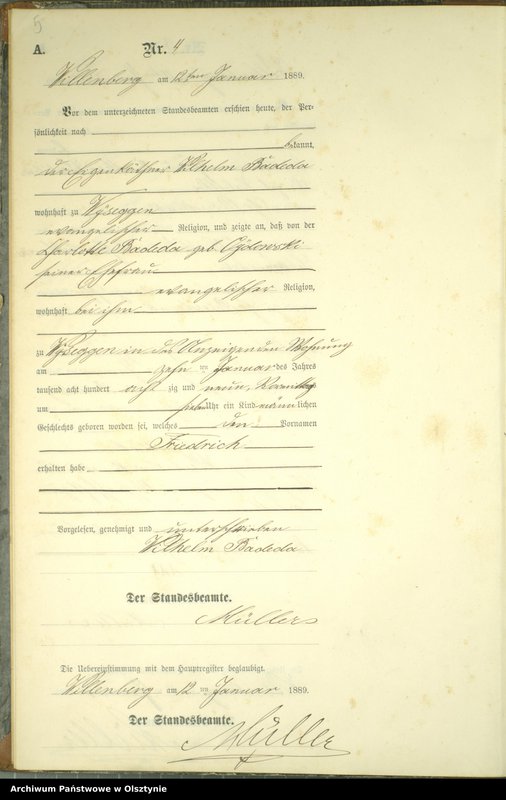 5
A. Nr. 4
Willenberg am 12ten Januar 1889.
Vor dem unterzeichneten Standesbeamten erschien heute, der Per-
sönlichkeit nach
bekannt,
der Eigenkäthner Wilhelm Badeda
wohnhaft zu Wyseggen
evangelischer Religion, und zeigte an, daß von der
Charlotte Badeda geb.
seiner Ehefrau
evangelischer Religion,
wohnhaft bei ihm
zu Wyseggen in des Anzeigenden Wohnung
am zehn ten Januar des Jahres
tausend acht hundert acht zig und neun, Vormittags
um sieben Uhr ein Kind männlichen
Geschlechts geboren worden sei, welches den Vornamen
Friedrich
erhalten habe
Vorgelesen, genehmigt und unterschrieben
Wilhelm Badeda
Der Standesbeamte.
Müller
Die Uebereinstimmung mit dem Hauptregister beglaubigt.
Willenberg am 12 ten Januar 1889.
Der Standesbeamte.
Müller
Archiwum Państwowe w Olsztynie